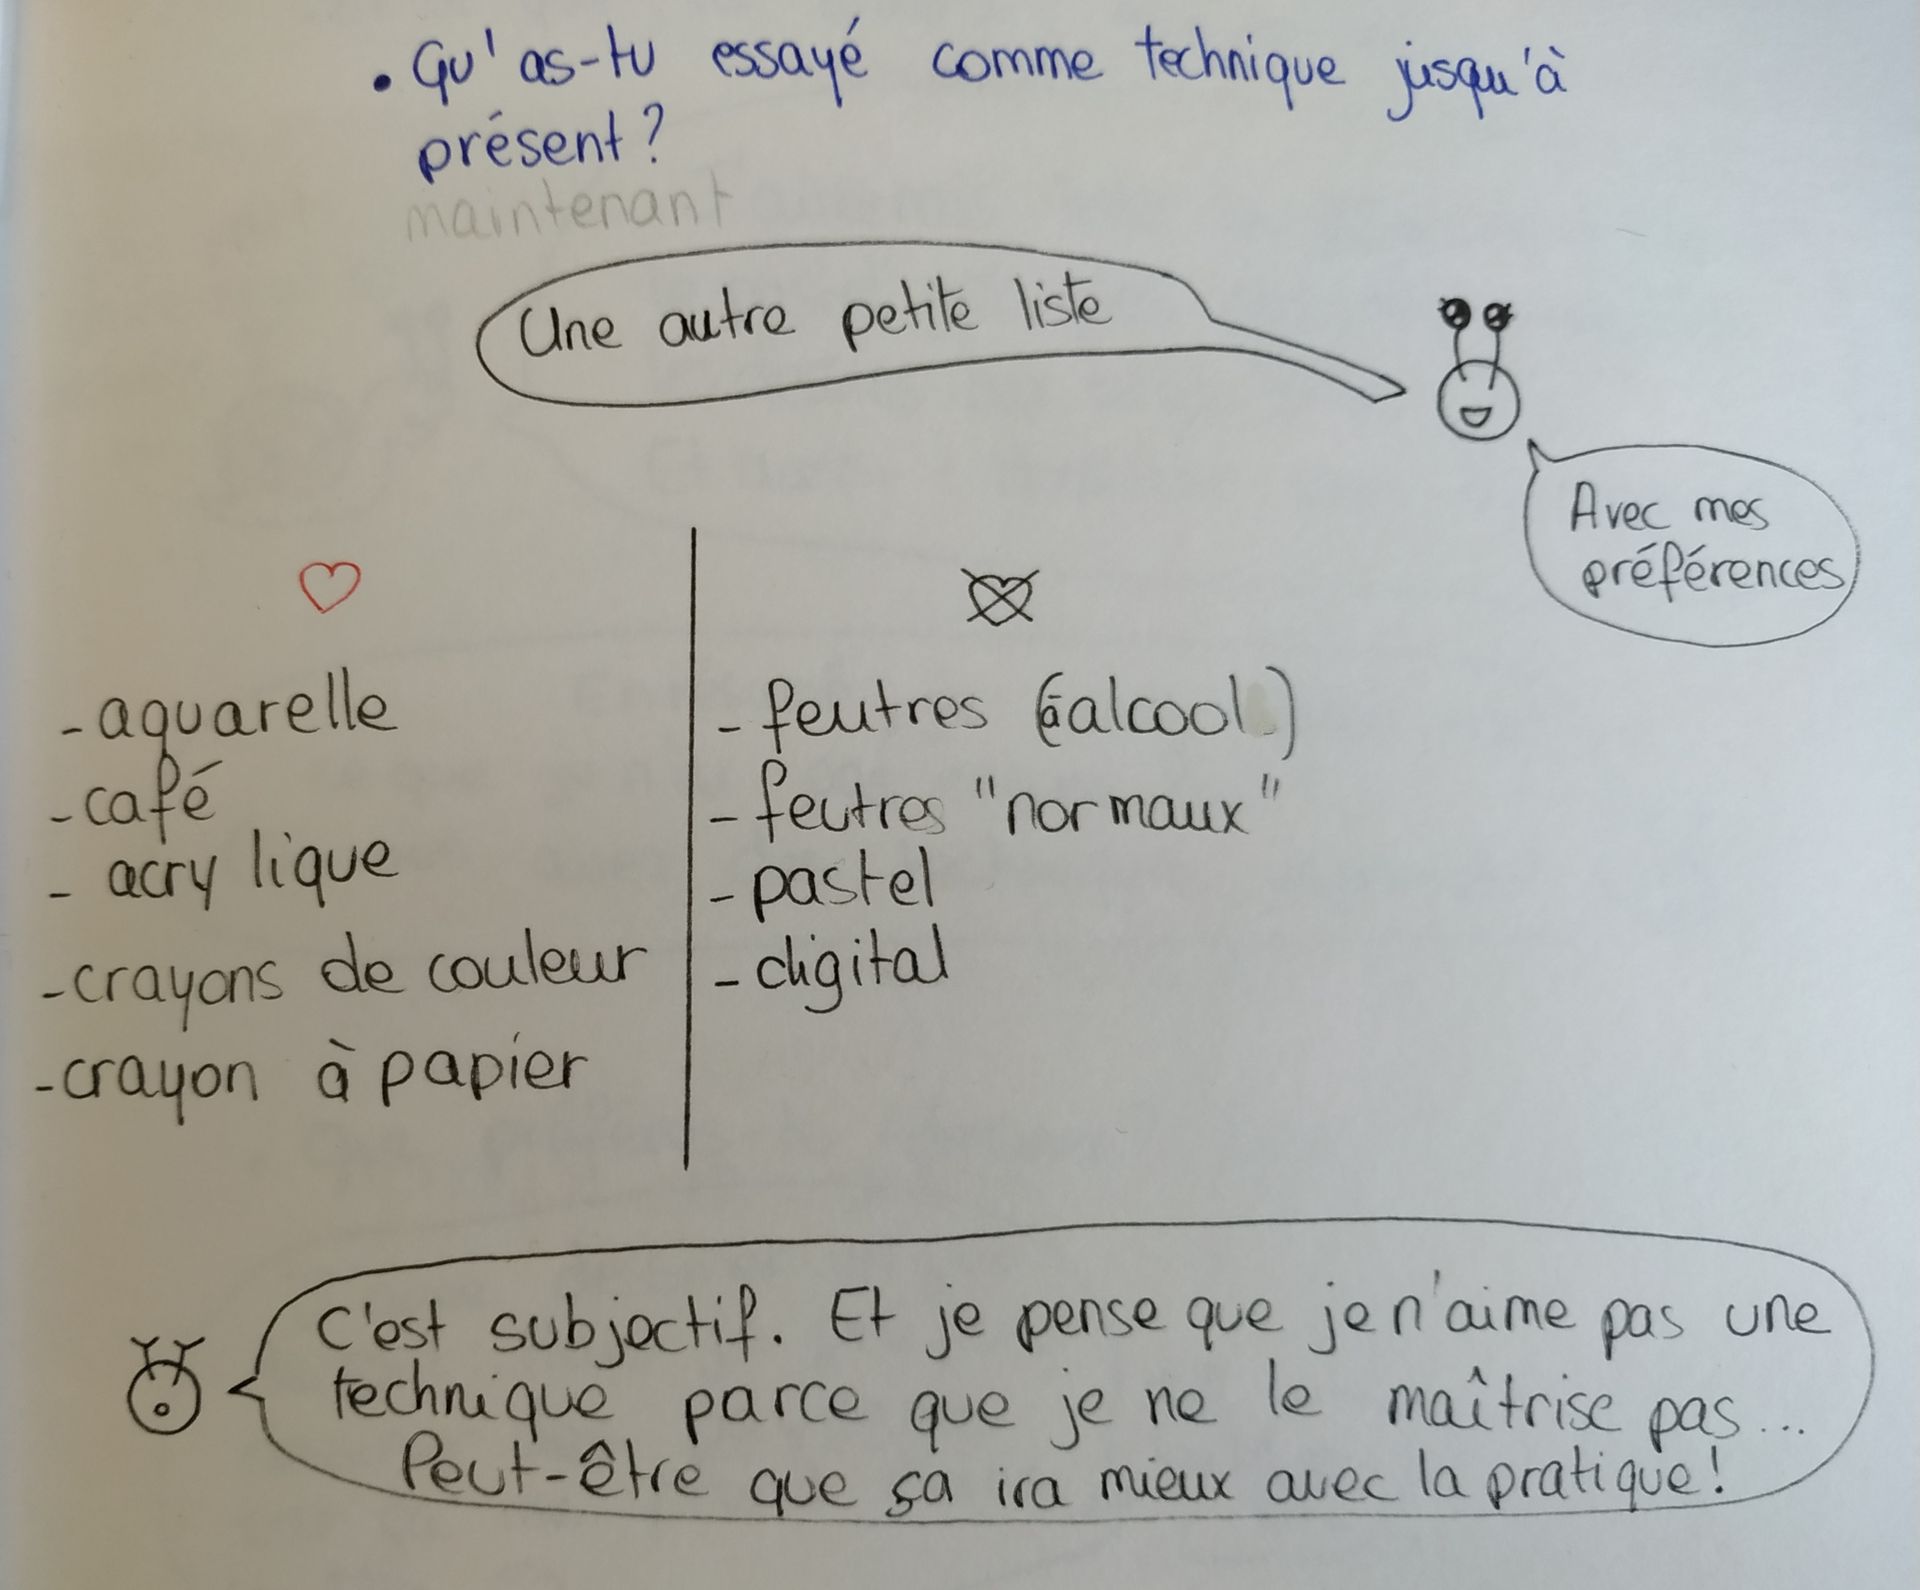 • Qu'as-tu essayé comme technique jusqu'à
présent?
maintenant
Une autre petite liste
Avec mes
préférences
- aquarelle
- café
- acrylique
- crayons de couleur
- crayon à papier
- feutres (à alcool)
- feutres "normaux"
- pastel
- digital
C'est subjectif. Et je pense que je n'aime pas une
technique parce que je ne le maîtrise pas...
Peut-être que ça ira mieux avec la pratique!